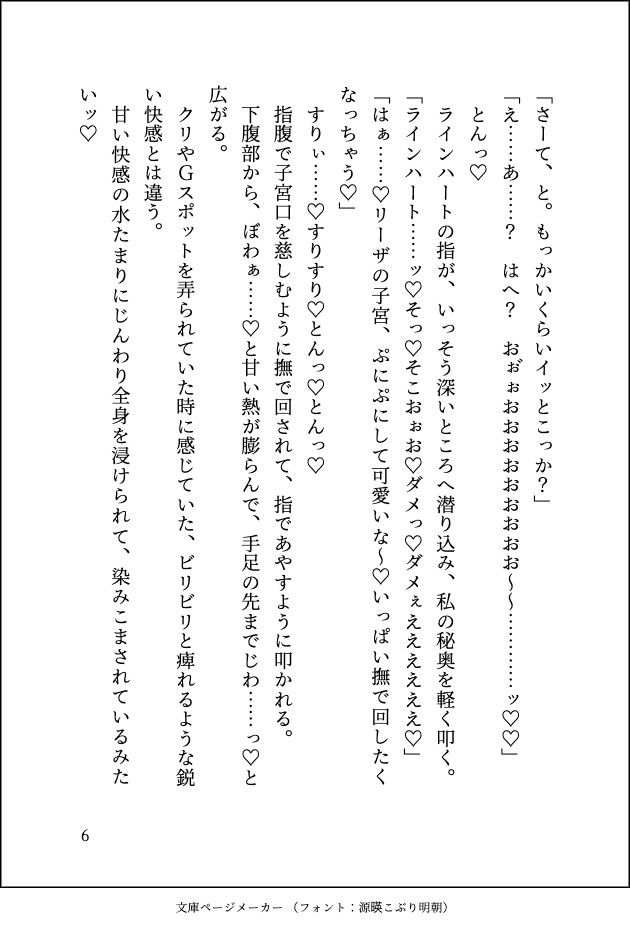 「さーて、と。もっかいくらいイッとこっか？」
「え……あ……？　はへ？　お゛ぉおおおおおおおおお～～…………ッ♡♡」
とんっ♡
ラインハートの指が、いっそう深いところへ潜り込み、私の秘奥を軽く叩く。
「ラインハート……ッ♡そっ♡そこおぉお♡ダメっ♡ダメぇええええええ♡」
「はぁ……♡リーザの子宮、ぷにぷにして可愛いな～♡いっぱい撫で回したく
なっちゃう♡」
すりぃ……♡すりすり♡とんっ♡とんっ♡
指腹で子宮口を慈しむように撫で回されて、指であやすように叩かれる。
下腹部から、ぼわぁ……♡と甘い熱が膨らんで、手足の先までじわ……っ♡と
広がる。
クリやＧスポットを弄られていた時に感じていた、ビリビリと痺れるような鋭
い快感とは違う。
甘い快感の水たまりにじんわり全身を浸けられて、染みこまされているみた
いッ♡
6
文庫ページメーカー（フォント：源暎こぶり明朝）